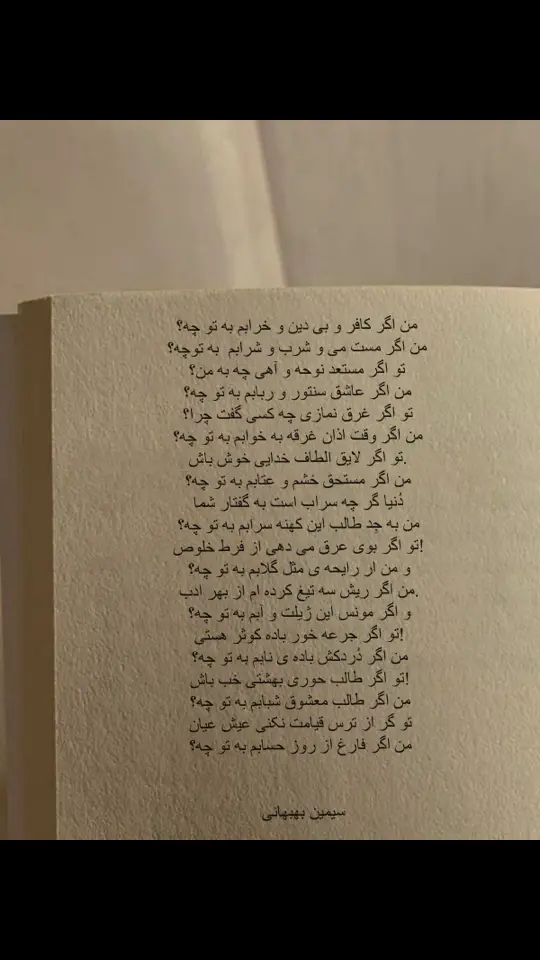 من اگر کافر و بی دین و خرابم به تو چه؟
من اگر مست می و شرب و شرابم به توچه؟
تو اگر مستعد نوحه و آهی چه به من؟
من اگر عاشق سنتور و ربابم به تو چه؟
تو اگر غرق نمازی چه کسی گفت چرا؟
من اگر وقت اذان غرقه به خوابم به تو چه؟
.تو اگر لایق الطاف خدایی خوش باش
من اگر مستحق خشم و عتابم به تو چه؟
دُنیا گر چه سراب است به گفتار شما
من به جِد طالب این کهنه سرابم به تو چه؟
!تو اگر بوی عرق می دهی از فرط خلوص
و من ار رایحه ی مثل گلابم به تو چه؟
.من اگر ریش سه تیغ کرده ام از بهر ادب
و اگر مونس این ژیلت و آبم به تو چه؟
!تو اگر جرعه خور باده کوثر هستی
من اگر دُردکش باده ی نابم به تو چه؟
!تو اگر طالب حوری بهشتی خب باش
من اگر طالب معشوق شبابم به تو چه؟
تو گر از ترس قیامت نکنی عیش عیان
من اگر فارغ از روز حسابم به تو چه؟
سیمین بهبهانی